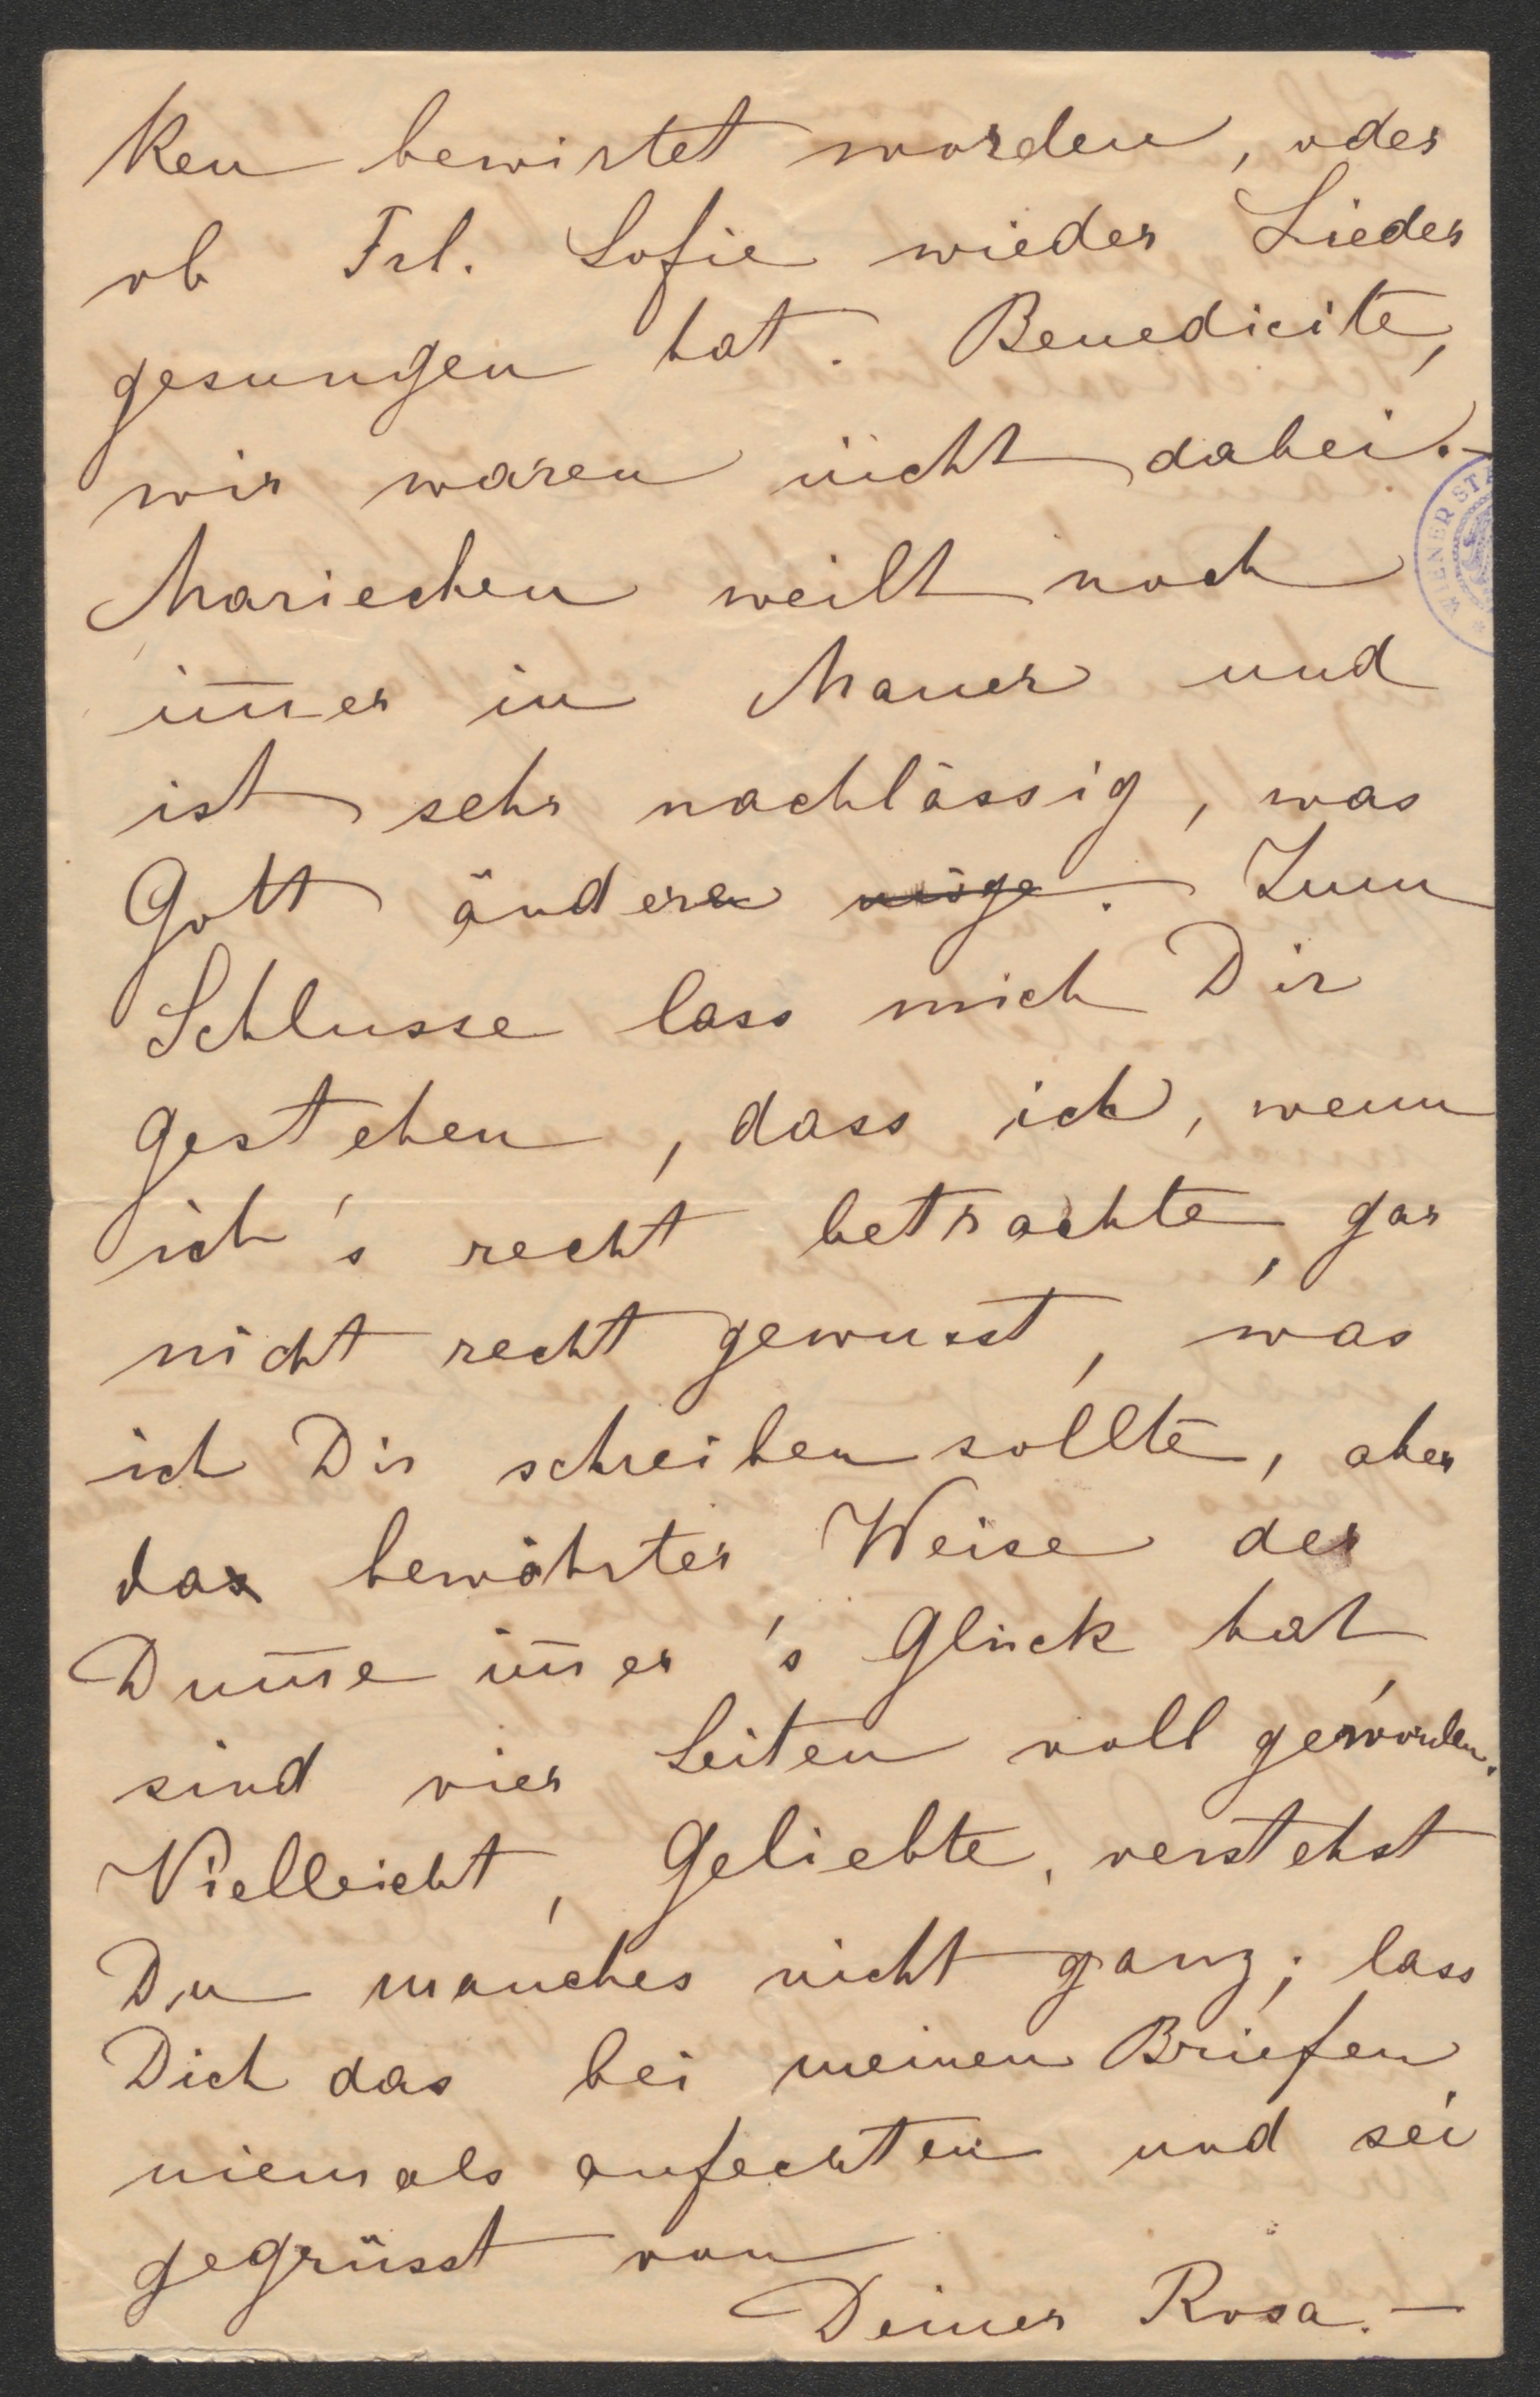 ken bewirtet worden, oder
ob Frl. Sofie wieder Lieder
gesungen hat. Benedicite,
wir waren nicht dabei. -
Mariechen weilt noch
im̅er in Mauer und
ist sehr nachlässig, was
Gott ändere möge. Zum
Schlusse lass mich Dir
gestehen, dass ich, wenn
ich's recht betrachte, gar
nicht recht gewusst, was
ich Dir schreiben sollte, aber
da bewährter Weise der
Dum̅e im̅er 's Glück hat,
sind vier Seiten voll geworden.
Vielleicht, Geliebte, verstehst
Du manches nicht ganz; lass
Dich das bei meinen Briefen
niemals anfechten und sei
gegrüsst von
Deiner Rosa. -
WIENER ST